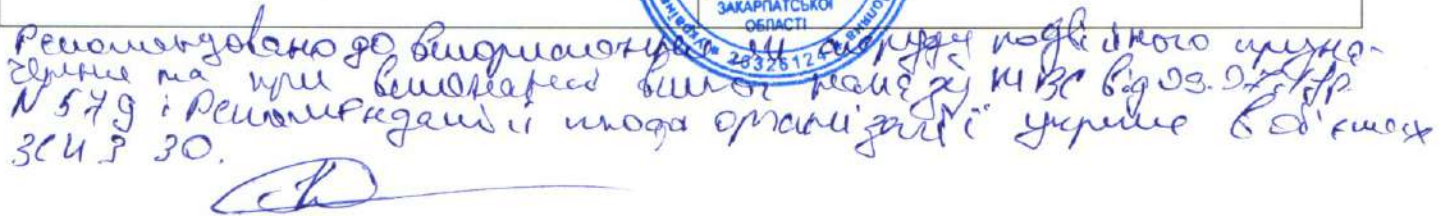 ЗАКАРПАТСЬКОЇ
ОБЛАСТІ
Рекомендовано до використання як споруду подвійного призна-
чення та при виконанні вимог наказу МВС від 09.07.18р.
N 579 і Рекомендацій щодо організації укриття в об'єктах